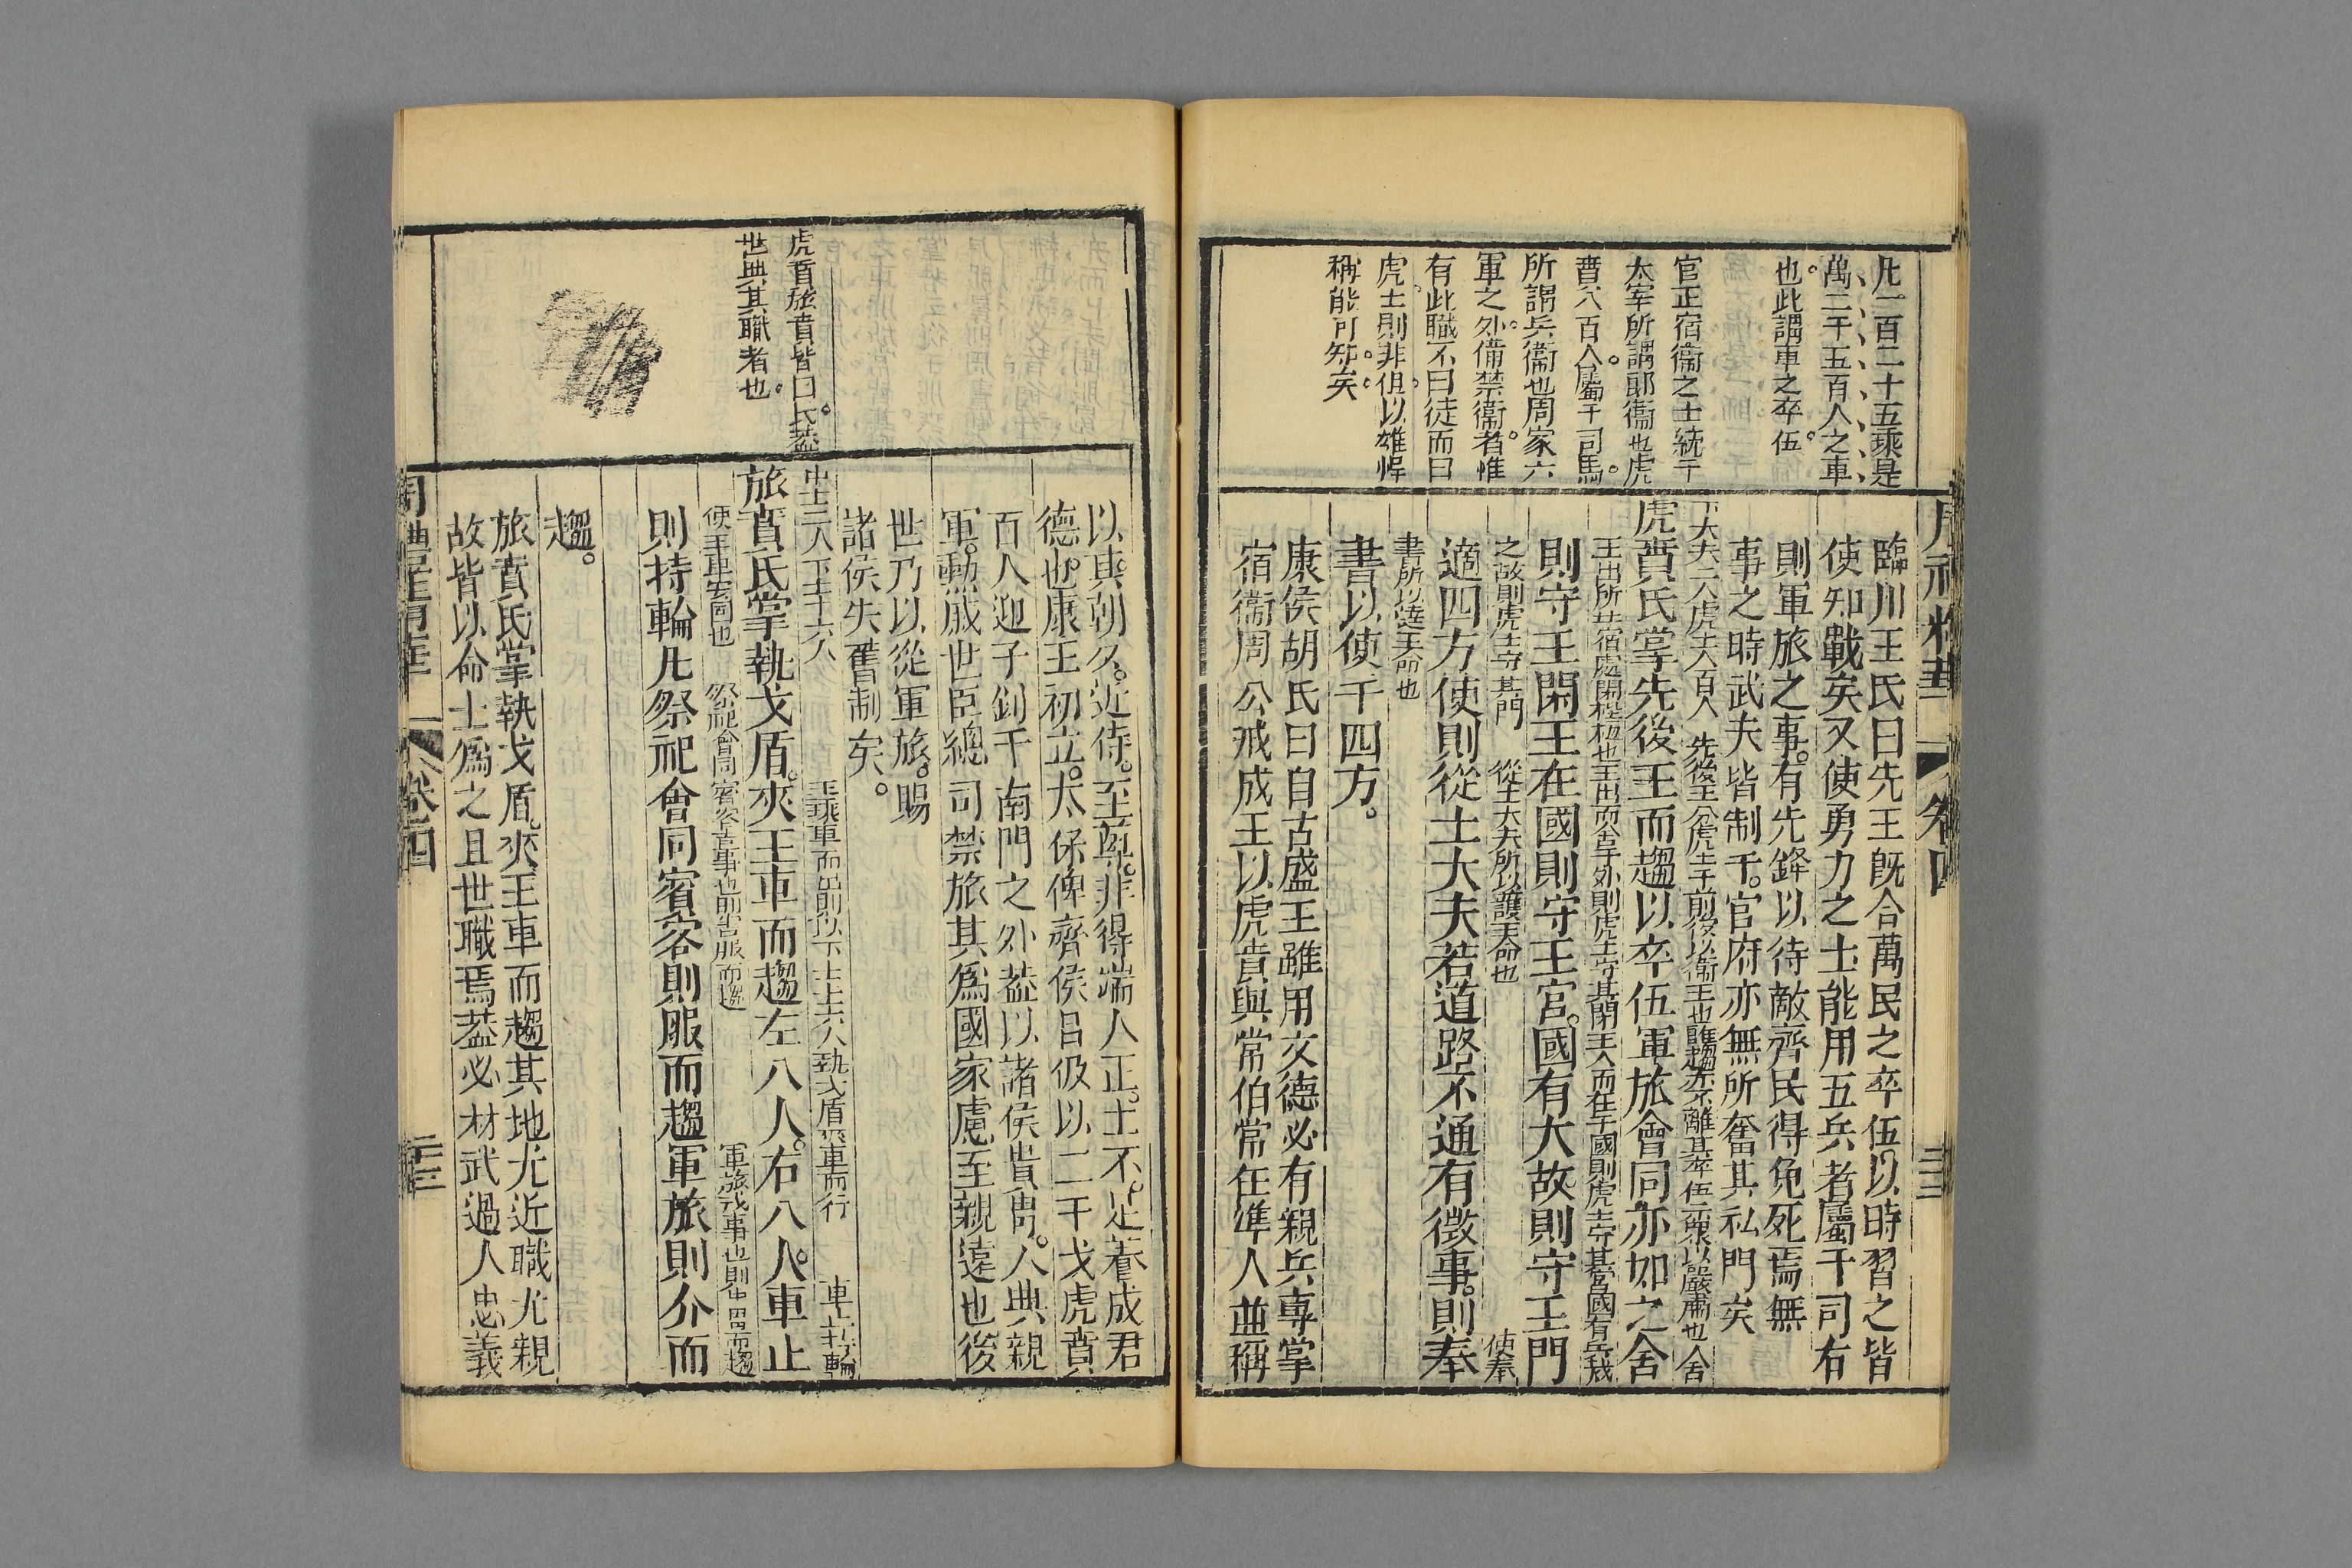 凡一百二十五乘是
萬二千五百人之車
也此謂車之卒伍
官正宿衞之士統于
太宰所謂郎衞也虎
賁八百人屬于司馬
所謂兵衞也周家六
軍之外備禁衞者惟
有此職不曰徒而曰
虎士則非但以雄悍
稱能可知矣
臨川王氏曰先王旣合萬民之卒伍以時習之皆
使知戰矣又使勇力之士能用五兵者屬于司右
則軍旅之事有先鋒以待敵齊民得免死焉無
事之時武夫皆制于官府亦無所奮其私門矣
下大夫二人虎士八百人
虎賁氏掌先後王而趨以卒伍軍旅會同亦如之舍
則守王閑王在國則守王宮國有大故則守王門
之故則虎士守其門 從士大夫所以護王命也 使奉
適四方使則從士大夫若道路不通有徵事則奉
書所以達王命也
書以使于四方
康侯胡氏曰自古盛王雖用文德必有親兵專掌
宿衞周公戒成王以虎賁與常伯常任準人並稱
周禮精華 卷四
虎賁旅賁皆曰氏葢
世典其職者也
以輿朝夕近侍至
非得端人正士不足養成君
德也康王初立太保俾齊侯呂伋以二干戈虎賁
百人迎子釗于南門之外葢以諸侯貴胄入典親
軍勳戚世臣總司禁旅其爲國家慮至親遠也後
世乃以從軍旅賜
諸侯失舊制矣
中士二人下士十六人
旅賁氏掌執戈盾夾王車而趨左八人右八人車止
使王車安固也
則持輪凡祭祀會同賓客則服而趨軍旅則介而
趨
旅賁氏掌執戈盾夾王車而趨其地尤近職尤親
故皆以命士爲之且世職焉葢必材武過人忠義
周禮精華 卷四